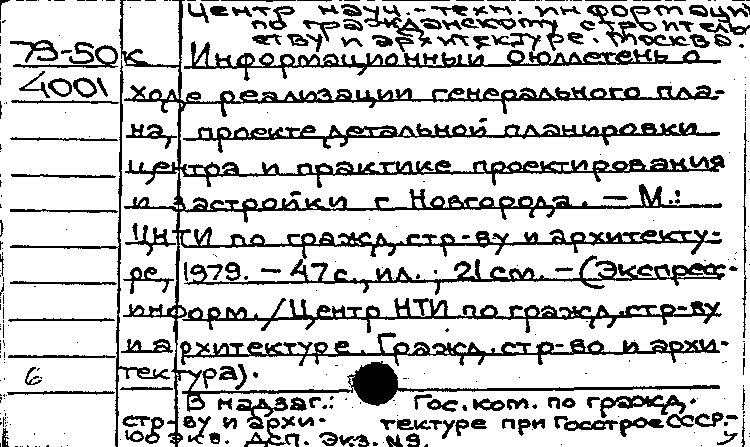 Центр науч.-техн. информации
по гражданскому строитель
ству и архитектуре. Москва.
79-50к Информационный бюллетень о
4001 ходе реализации генерального пла-
на, проекте детальной планировки
центра и практике проектирования
и застройки г Новгорода. - М.:
ЦНТИ по гражд. стр-ву и архитекту-
ре, 1979. - 47 с., ил. ; 21 см. - (Экспресс-
информ. / Центр НТИ по гражд. стр-ву
и архитектуре. Гражд. стр-во и архи-
6 тектура).
В надзаг.: Гос. ком. по гражд.
стр-ву и архи- тектуре при Госстрое СССР.-
100 экв. ДСП. Экз. №9.